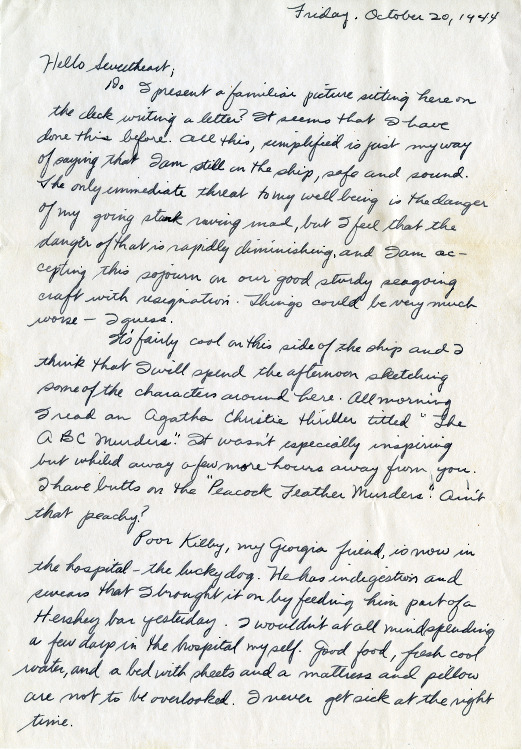 Friday. October 20, 1944
Hello Sweetheart,
Do I present a familiar picture sitting here on
the deck writing a letter? It seems that I have
done this before. All this, simplified is just my way
of saying that I am still on the ship, safe and sound.
The only immediate threat to my well being is the danger
of my going stark raving mad, but I feel that the
danger of that is rapidly diminishing, and I am ac-
cepting this sojourn on our good sturdy seagoing
craft with resignation. Things could be very much
worse – I guess.
It's fairly cool on this side of the ship and I
think that I will spend the afternoon sketching
some of the characters around here. All morning
I read an Agatha Christie thriller titled "The
A B C Murders". It wasn't especially inspiring
but whiled away a few more hours away from you.
I have butts on the "Peacock Feather Murders". Ain't
that peachy?
Poor Kilby, my Georgia friend, is now in
the hospital – the lucky dog. He has indigestion and
swears that I brought it on by feeding him part of a
Hershey bar yesterday. I wouldn't at all mind spending
a few days in the hospital myself. Good food, fresh cool
water, and a bed with sheets and a mattress and pillow
are not to be overlooked. I never get sick at the right
time.